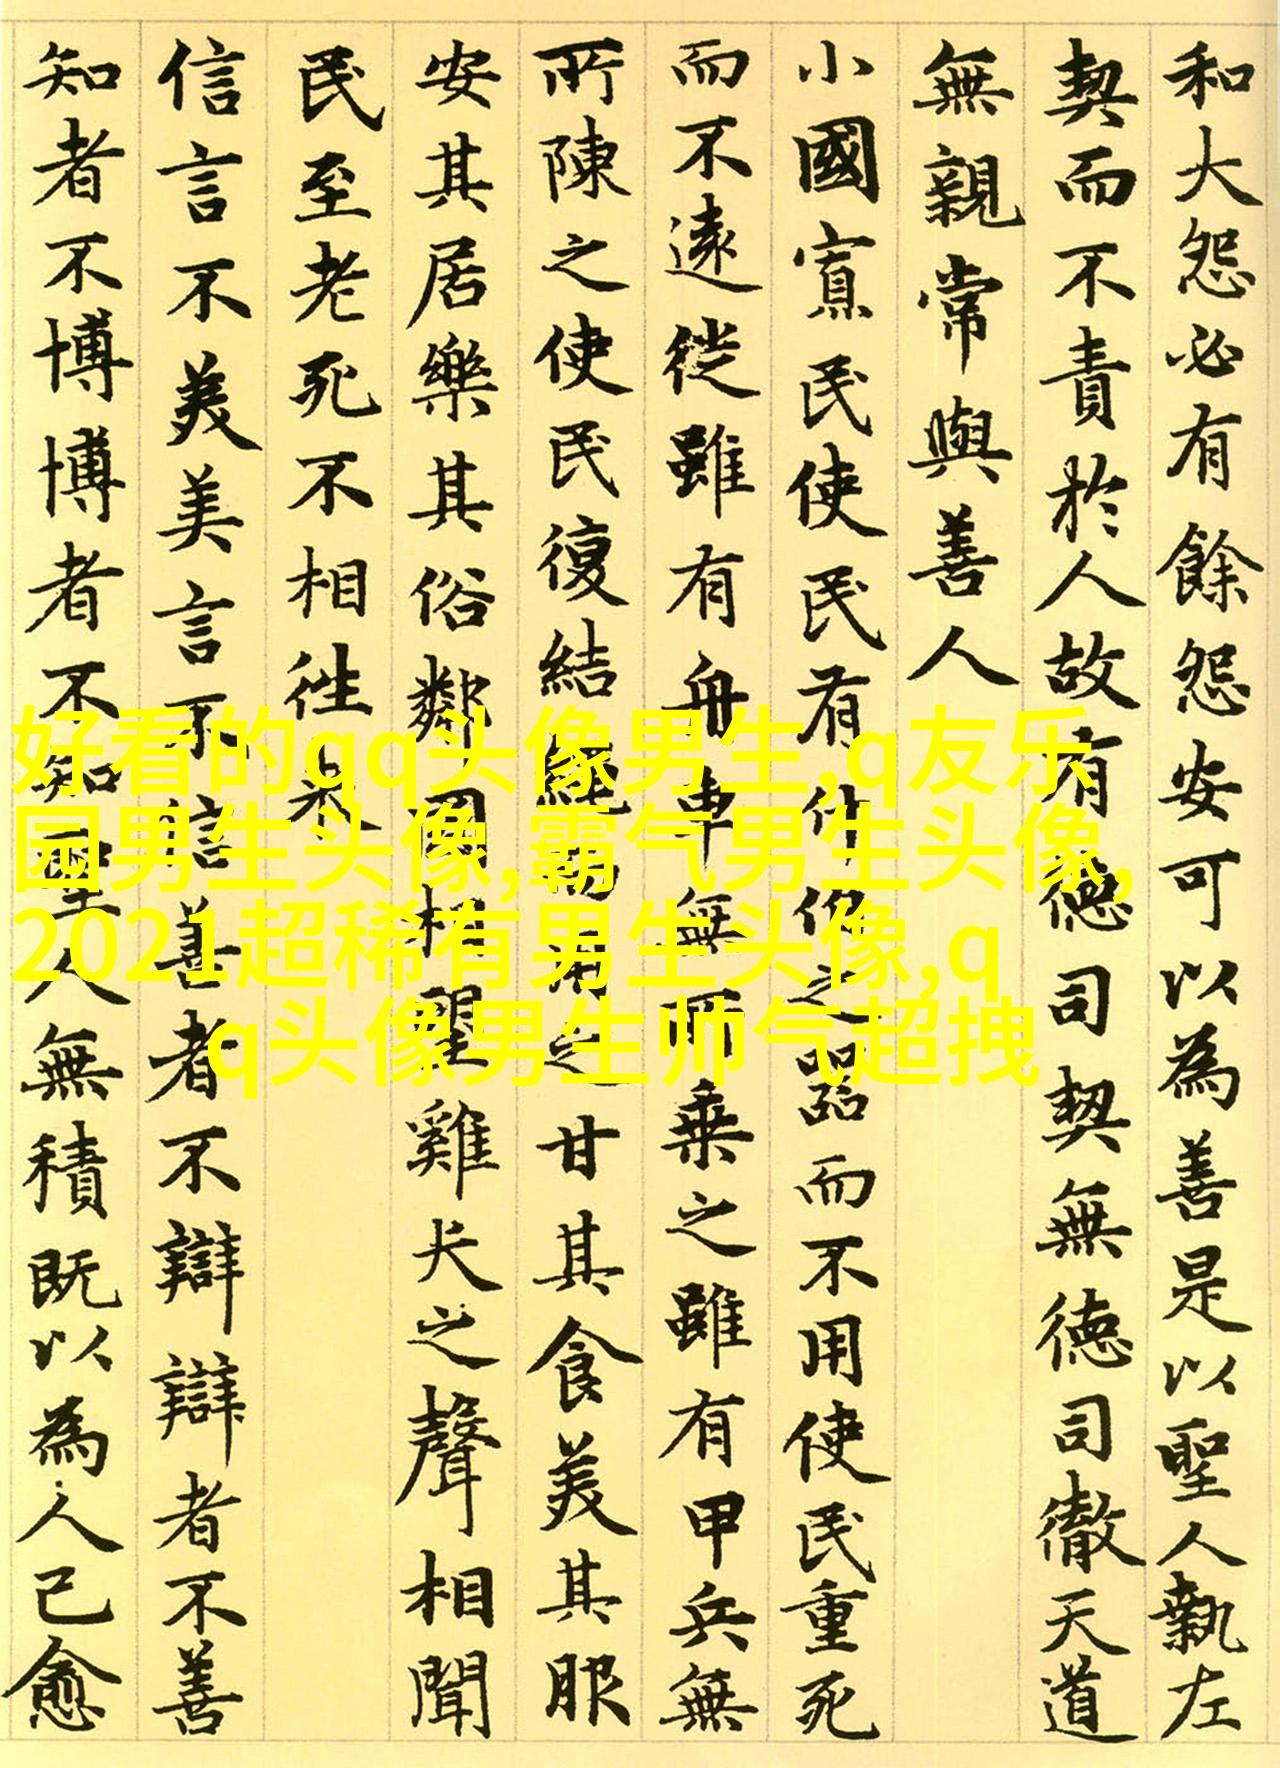 和大怨必有餘怨安可以為善是以聖人執左
契而不責於人故有德司契無德司徹天道
無親常與善人
小國寡民使民有什伯之器而不用使民重死
而不遠徙雖有舟車無所乘之雖有甲兵無
所陳之使民復結繩而用之甘其食美其服
安其居樂其俗鄰國相望雞犬之聲相聞
民至老死不相往來
信言不美美言不信善者不辯辯者不善
知者不博博者不知聖人無積既以為人己愈
好看的qq头像男生,q友乐
园男生头像,霸气男生头像,
2021超稀有男生头像,q
q头像男生帅气超拽